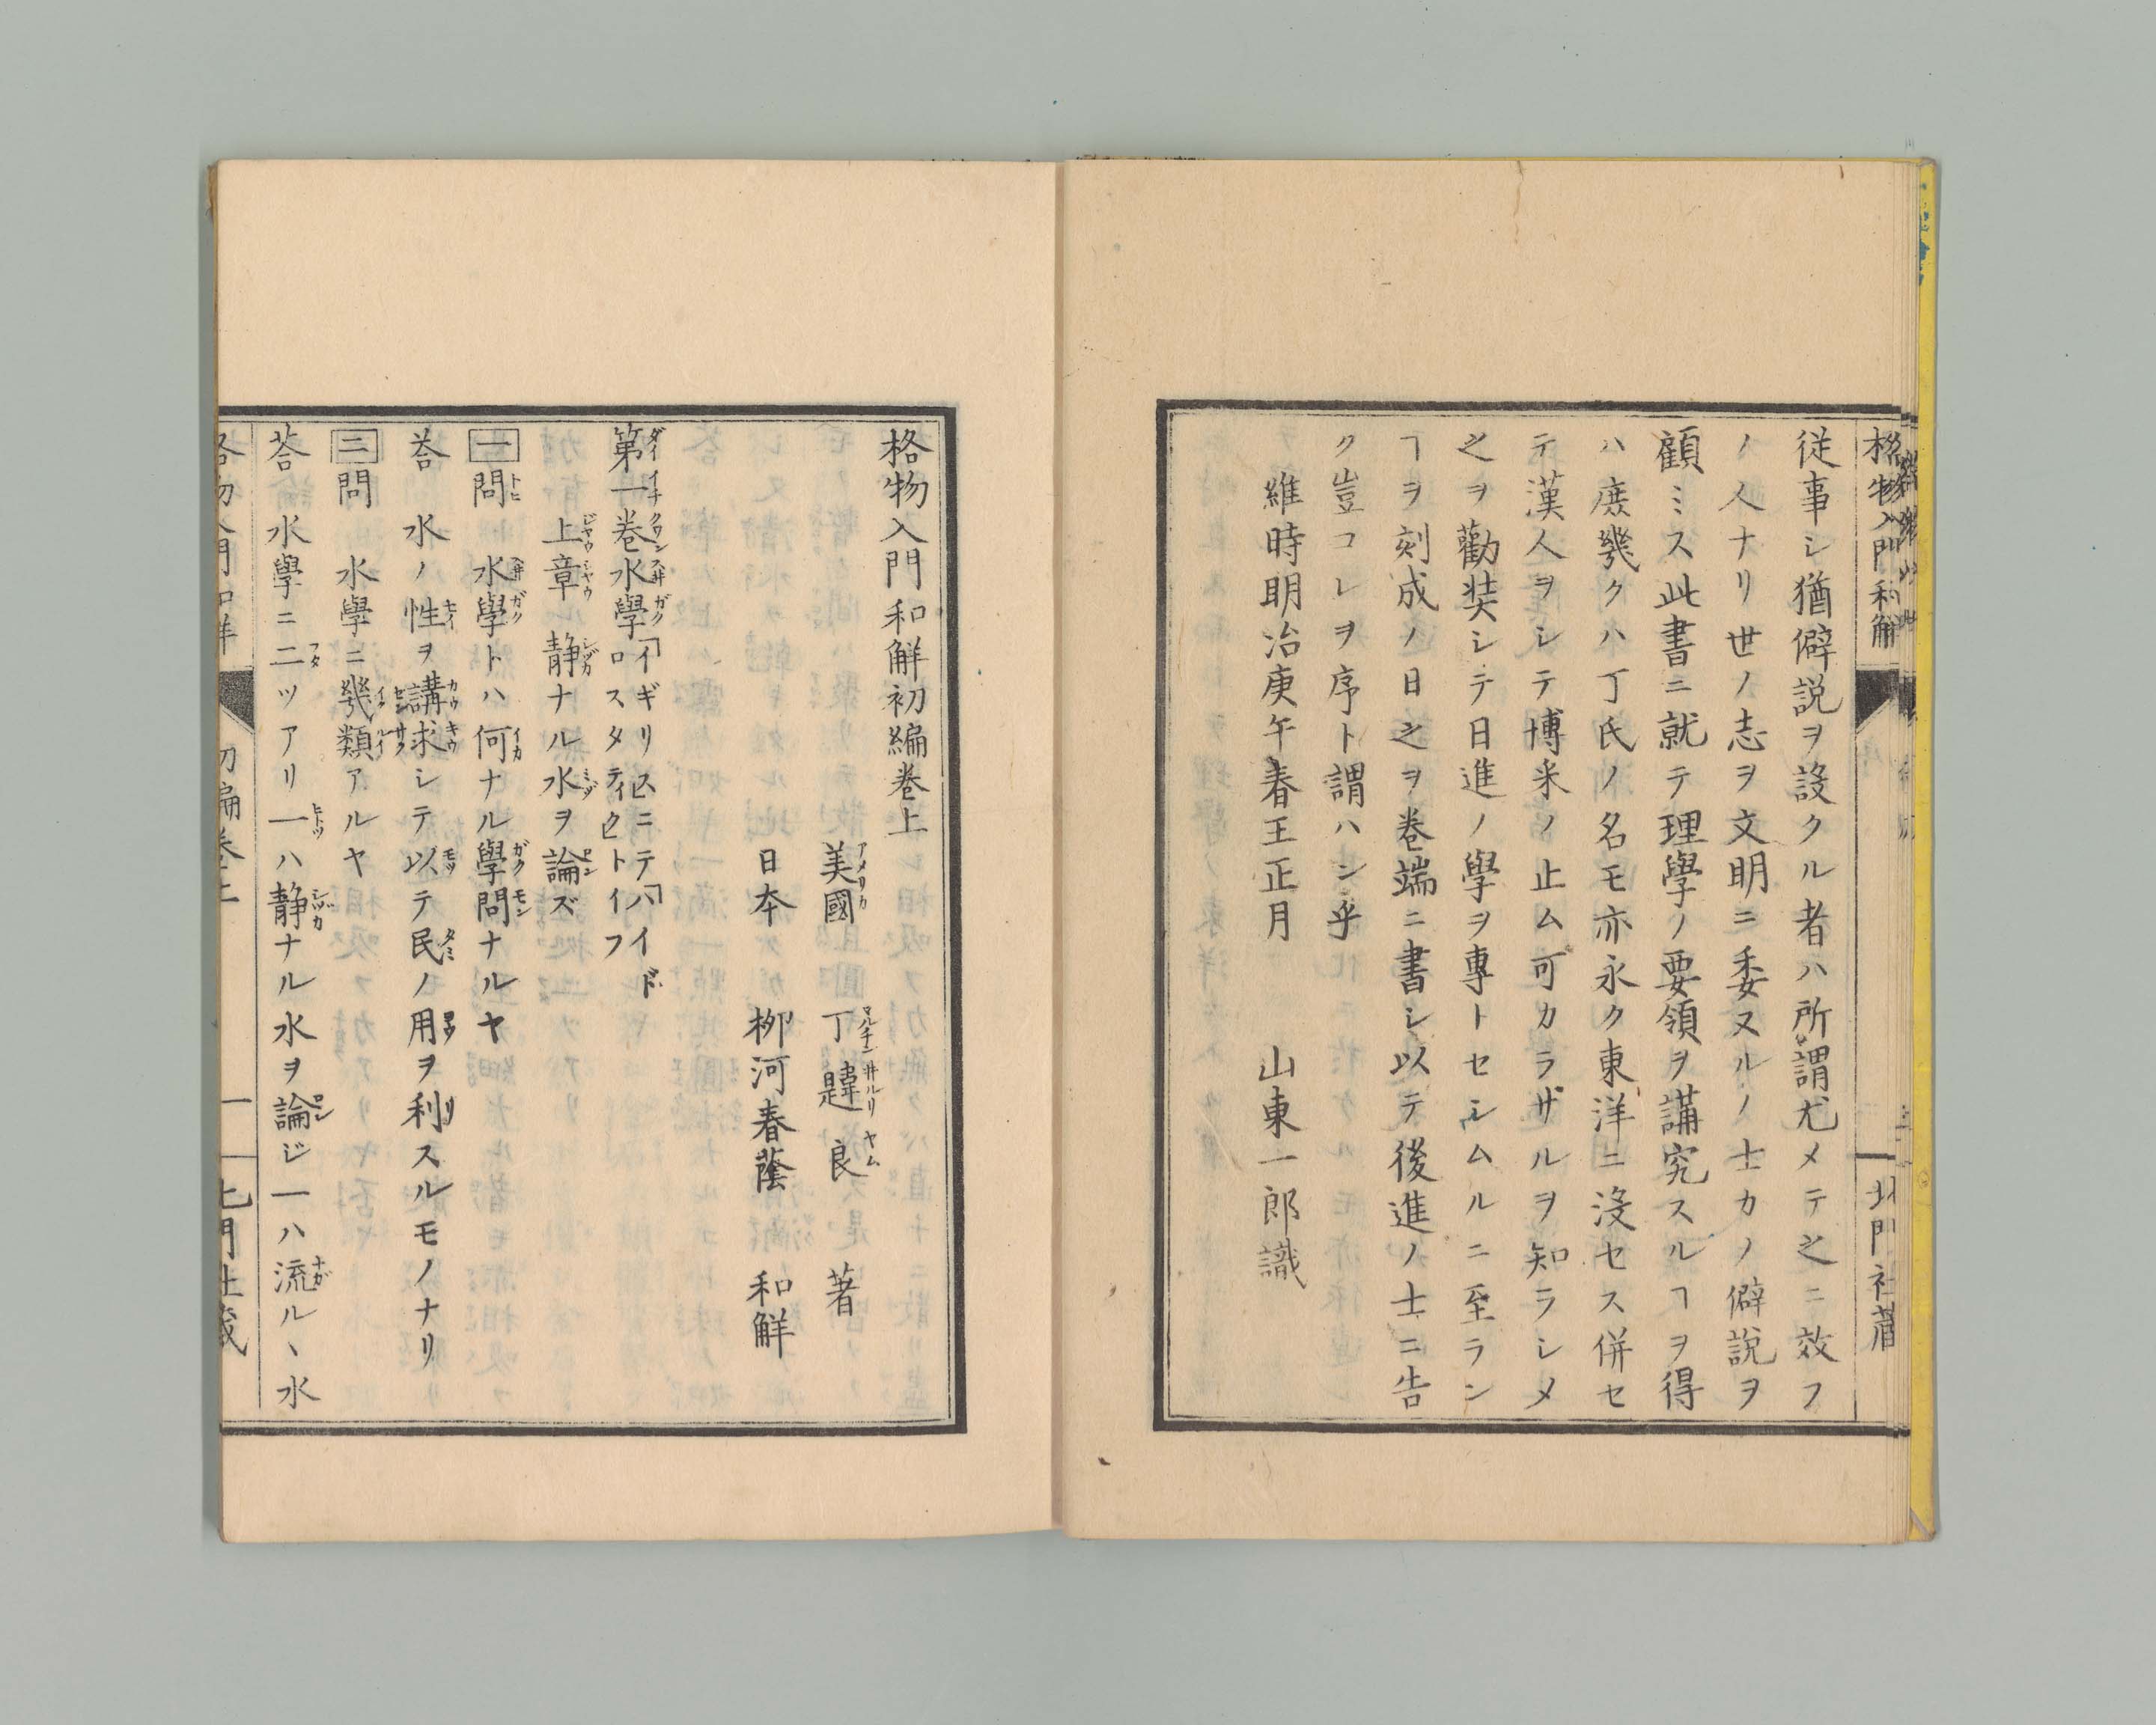 格物入門和解
北門社藏
従事シ猶僻説ヲ設クル者ハ所謂尤メテ之ニ效フ
ノ人ナリ世ノ志ヲ文明ニ委ヌルノ士カノ僻説ヲ
顧ミス此書ニ就テ理學ノ要領ヲ講究スルヿヲ得
ハ庶幾クハ丁氏ノ名モ亦永ク東洋ニ沒セス併セ
テ漢人ヲシテ博釆ノ止ム可カラサルヲ知ラシメ
之ヲ勸奘シテ日進ノ學ヲ專トセシムルニ至ラン
ヿヲ刻成ノ日之ヲ巻端ニ書シ以テ後進ノ士ニ告
ク豈コレヲ序ト謂ハン乎
維時明治庚午春王正月 山東一郎識
格物入門和解初編巻上
美國 丁韙良 著
日本 栁河春蔭 和解
第一巻水學「イギリス」ニテ「ハイド
ロスタティク」トイフ
上章 静ナル水ヲ論ズ
一問 水學トハ何ナル學問ナルヤ
荅 水ノ性ヲ講求シテ以テ民ノ用ヲ利スルモノナリ
二問 水學ニ幾類アルヤ
荅 水學ニ二ツアリ一ハ静ナル水ヲ論ジ一ハ流ルヽ水
格物入門和解 初編巻上 一 北門社藏